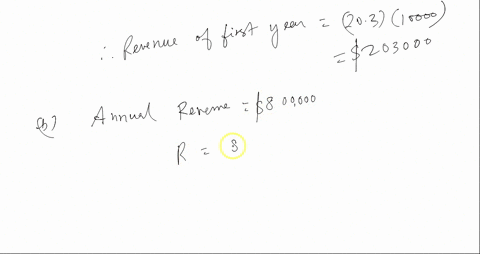 ∴ Revenue of first year = (20.3) (10000)
= $203000
b) Annual Revenue = $800,000
R = 8